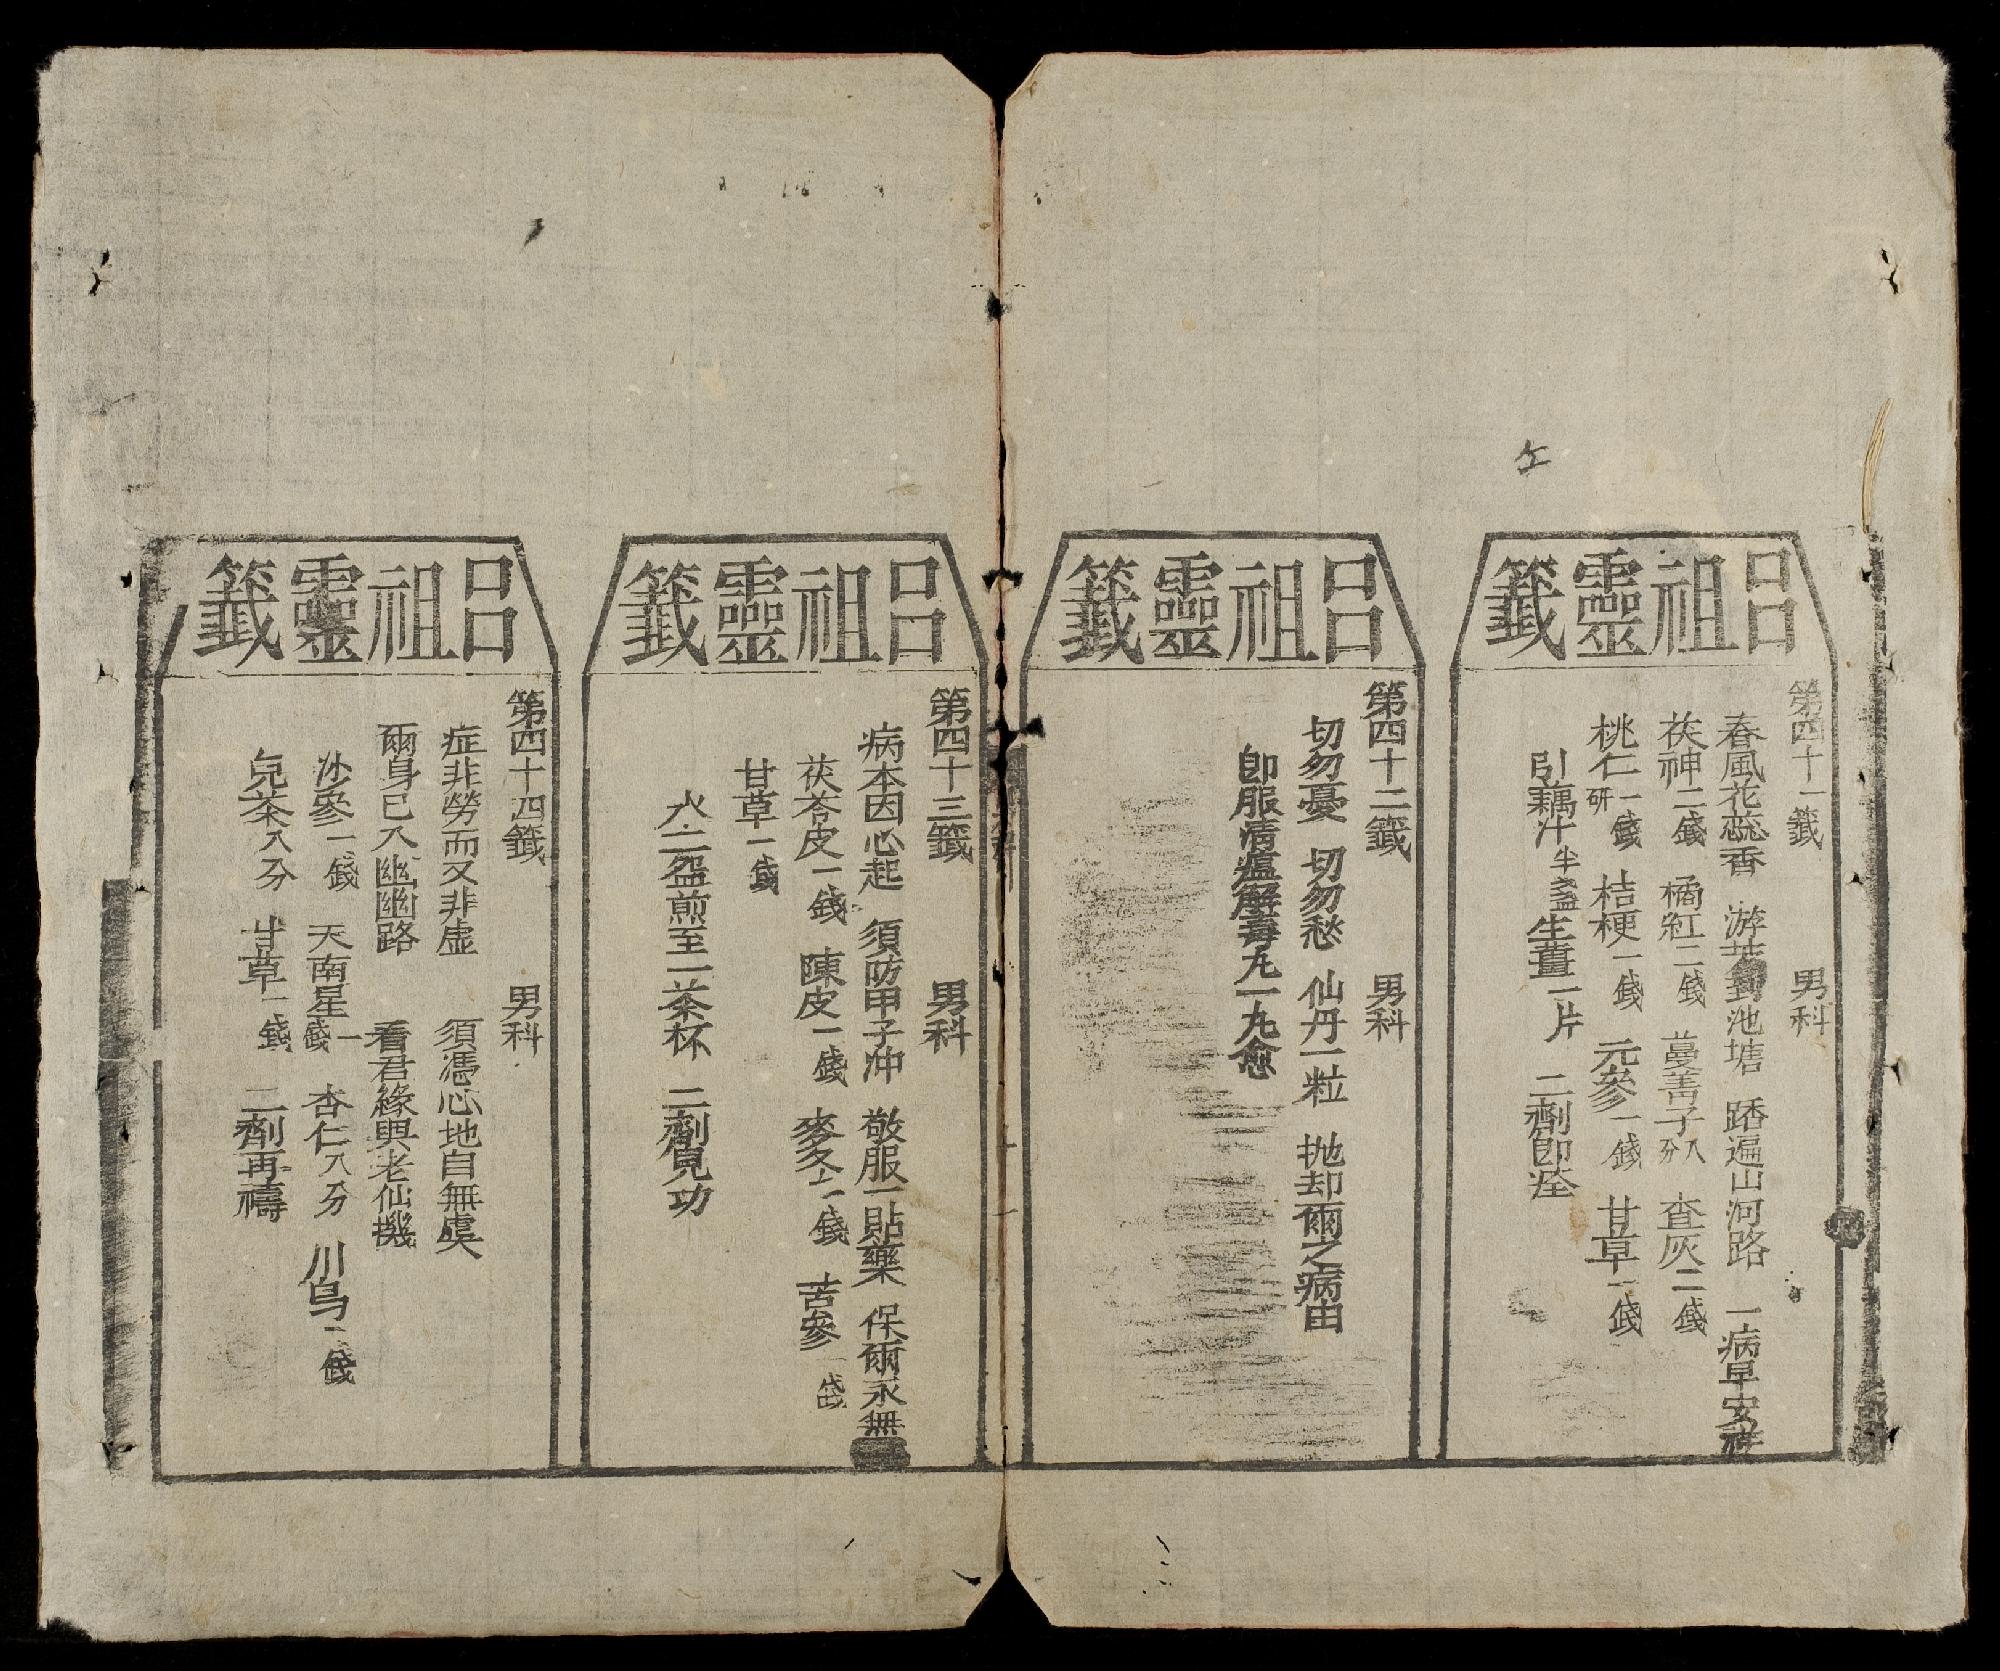 呂祖靈籤
第四十一籤 男科
春風花蕊香 游芸到池塘 踏遍山河路 一病早安祥
茯神二錢 橘紅二錢 蔓菁子八分 查灰二錢
桃仁一錢研 桔梗一錢 元參一錢 甘草一錢
引藕汁半盞生薑一片 二劑即痊
呂祖靈籤
第四十二籤 男科
切勿憂 切勿愁 仙丹一粒 拋却爾之病由
即服清瘟解毒丸一丸愈
呂祖靈籤
第四十三籤 男科
病本因心起 須防甲子冲 敬服一貼藥 保爾永無
茯苓皮一錢 陳皮一錢 麥冬一錢 苦參一錢
甘草一錢
水二盌煎至一茶杯 二劑見功
呂祖靈籤
第四十四籤 男科
症非勞而又非虛 須憑心地自無虞
爾身已入幽幽路 看君緣與老仙機
沙參一錢 天南星一錢 杏仁八分 川烏一錢
兒茶八分 甘草一錢 二劑再禱